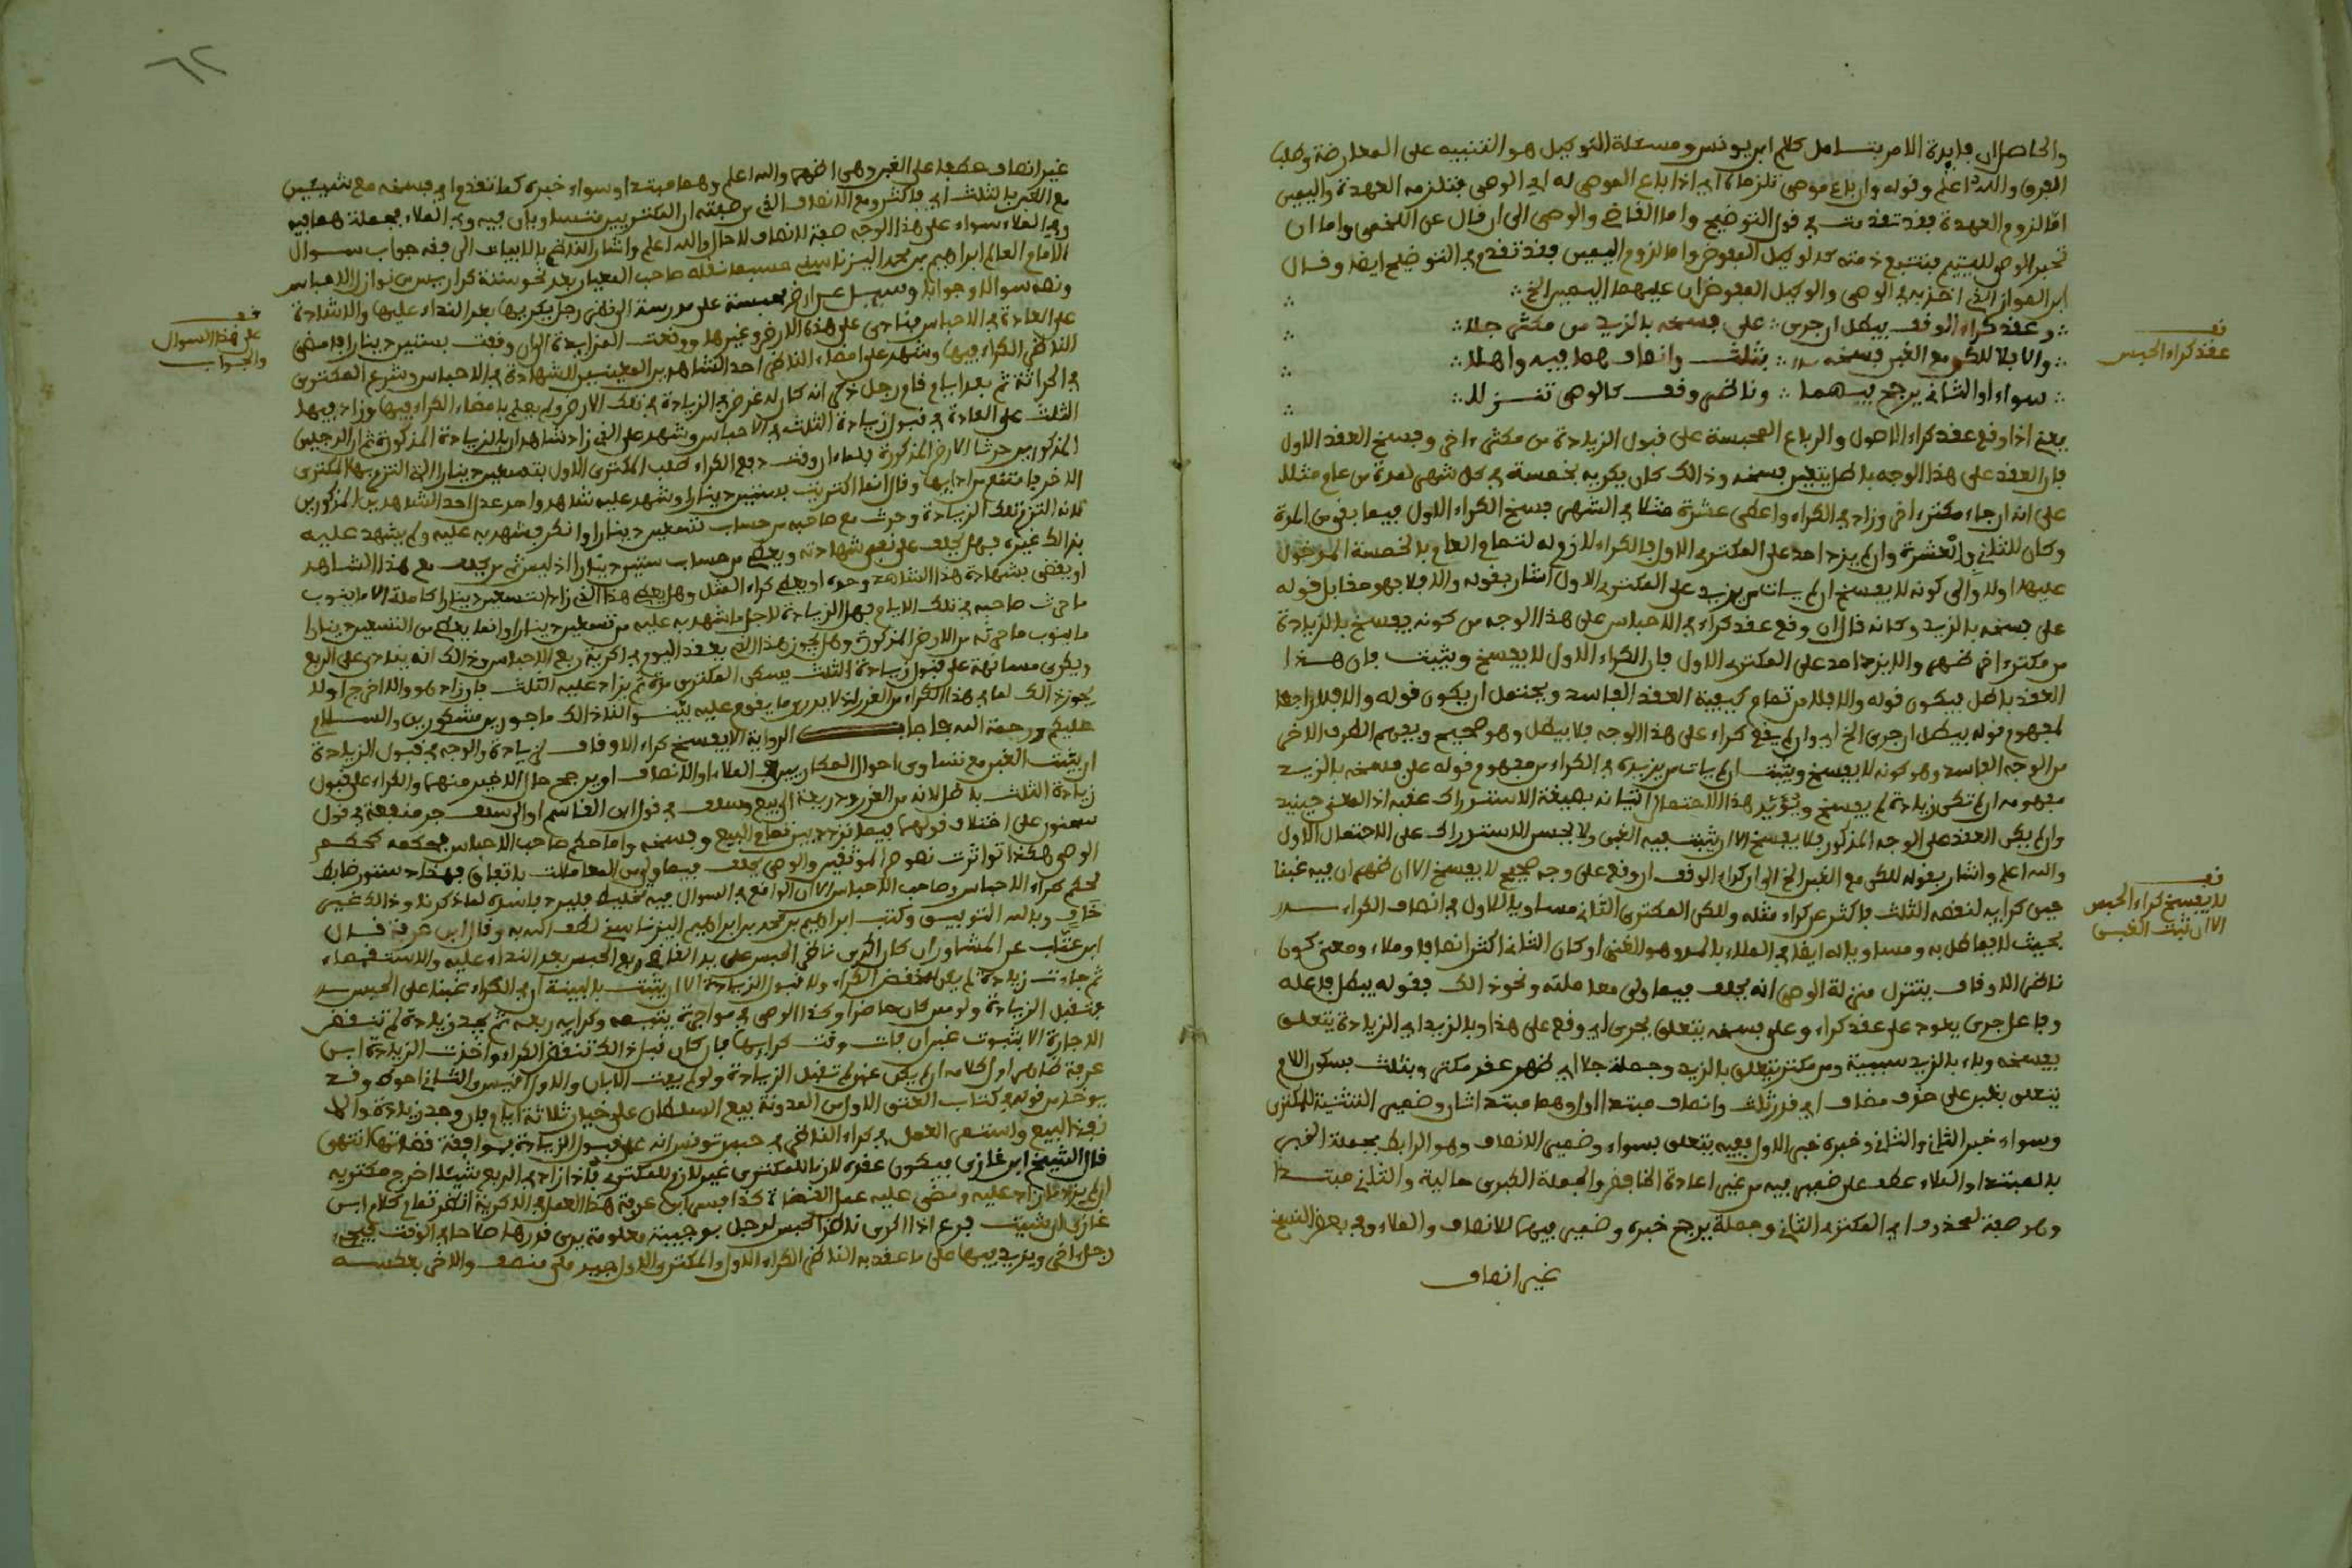 والحاصل ان فايدة الامر بتامل كلام ابن يونس ومسئلة التوكيل هو التنبيه على المعارضة وطلب
الفرق والله اعلم وقوله وان باع موصى تلزماه اي اذا باع الموصى له اي الوصي فتلزمه العهدة واليمين
اما لزوم العهدة فقد تقدمت في قول التوضيح واما القاضي والوصي الى ان قال عن اللخمي واما ان
تجر الوصي لليتيم فتتبع ذمته كالوكيل المفوض واما لزوم اليمين فقد تقدم في التوضيح ايضا وقال
ابن المواز الذي اخذ به في الوصي والوكيل المفوض ان عليهما اليمين الخ
وعقد كراء الوقف يبطل ان جرى على فسخه بالزيد من مكتر جلا
والا فلا لكن مع الغبن فسخه بثلث وانصاف هما فيه واهلا
سواء او الثاني يرجح فيهما وناظر وقف كالوصي تنزلا
يعني اذا وقع عقد كراء الاصول والرباع المحبسة على قبول الزيادة من مكتر ءاخر وفسخ العقد الاول
فان العقد على هذا الوجه باطل يتعين فسخه وذالك كان يكريه بخمسة في كل شهر لمدة من عام مثلا
على انه ان جاء مكتر ءاخر وزاد في الكراء واعطى عشرة مثلا في الشهر فسخ الكراء الاول فيما بقي من المدة
وكان للثاني بالعشرة وان لم يزد احد على المكتري الاول فالكراء لازم له لتمام العام بالخمسة المدخول
عليها اولا والى كونه لا يفسخ ان لم يات من يزيد على المكتري الاول اشار بقوله والا فلا فهو مقابل قوله
على فسخه بالزيد وكانه قال ان وقع عقد كراء في الاحباس على هذا الوجه من كونه يفسخ بالزيادة
من مكتر ءاخر ظهر والا يزد احد على المكتري الاول فان الكراء الاول لا يفسخ ويثبت فان هذا
العقد باطل فيكون قوله والا فلا من تمام كيفية العقد الفاسد ويحتمل ان يكون قوله والا فلا راجعا
لمفهوم قوله يبطل ان جرى الخ اي وان لم يقع كراء على هذا الوجه فلا يبطل وهو صحيح ويفهم الطرف الاخر
من الوجه الفاسد وهو كونه لا يفسخ ويثبت ان لم يات من يزيد في الكراء من مفهوم قوله على فسخه بالزيد
مفهومه ان لم تكن زيادة لم يفسخ ويؤيد هذا الاحتمال اتيانه بصيغة الاستدراك عقبه اذ المعنى حينئذ
وان لم يكن العقد على الوجه المذكور فلا يفسخ الا ان يثبت فيه الغبن ولا يحسن الاستدراك على الاحتمال الاول
والله اعلم واشار بقوله لكن مع الغبن الخ الى ان كراء الوقف ان وقع على وجه صحيح لا يفسخ الا ان ظهر ان فيه غبنا
حين كرايه لنقصه الثلث فاكثر عن كراء مثله ولكن المكتري الثاني مساو بالاول في انصاف الكراء
بحيث لا يماطل به ومساو باله ايضا في الملاء بالمد وهو الغنى او كان الثاني اكثر انصافا وملاء ومعنى كون
ناظر الاوقاف يتنزل منزلة الوصي انه يحلف فيما ولى معاملته ونحو ذالك فقوله يبطل فاعله
وفاعل جرى يعود على عقد كراء وعلى فسخه يتعلق بجرى اي وقع على هذا وبالزيد اي الزيادة يتعلق
بفسخه وباء بالزيد سببية ومن مكتر يتعلق بالزيد وجملة جلا اي ظهر صفة مكتر وبثلث بسكون اللام
يتعلق بغبن على حذف مضاف اي قدر ثلث وانصاف مبتدا اول وهما مبتدا ثان وضمير التثنية للمكترى
وسواء خبر الثاني والثاني وخبره خبر الاول وفيه يتعلق بسواء وضمير الانصاف وهو الرابط بجملة الخبر
بالمبتدا والملاء عطف على ضمير فيه من غير اعادة الخافض والجملة الكبرى حالية والثاني مبتدا
وهو صفة لمحذوف اي المكتري الثاني وجملة يرجح خبره وضمير فيهما للانصاف والملاء وفي بعض النسخ
غير انصاف
قف
عقد كراء الحبس
قف
لا يفسخ كراء الحبس
الا ان ثبت الغبن
٦٢
غير انصاف عطفا على الغبن وهي اظهر والله اعلم وهما مبتدا وسواء خبره كما تقدم اي فسخه مع شيئين
مع الغبن بالثلث اي فاكثر ومع الانصاف الذي من صفته ان المكتريين متساويان فيه وفي الملاء فجملة هما فيه
وفي الملاء سواء على هذا الوجه صفة لانصاف لا حال والله اعلم واشار الناظم بالابيات الى فقه جواب سوال
الامام العالم ابراهيم بن محمد اليزناسني حسبما نقله صاحب المعيار بعد نحو ستة كراريس من نوازل الاحباس
ونصه سوالا وجوابا وسيل عن ارض محبسة على مدرسة الوفى رجل يكريها بعد النداء عليها والاشادة
على العادة في الاحباس فنادى على هذه الارض وغيرها ووقعت المزايدة الى ان وقفت بستين دينارا فامضى
الناظر الكراء فيها وشهد على امضاء الناظر احد الشاهدين المعينين للشهادة في الاحباس وشرع المكتري
في الحراثة ثم بعد ايام قام رجل ذكر انه كان له غرض في الزيادة في تلك الارض ولم يعلم بامضاء الكراء فيها وزاد فيها
الثلث على العادة في قبول زيادة الثلث في الاحباس وشهد على الذي زاد شاهدان بالزيادة المذكورة ثم ان الرجلين
المذكورين حرثا الارض المذكورة فلما ءان وقت دفع الكراء طلب المكتري الاول بتسعين دينارا التي التزم بها المكتري
الاخر فامتنع من ادايها وقال انما اكتريت بستين دينارا وشهد عليه شاهد واحد عدل احد الشاهدين المذكورين
بانه التزم تلك الزيادة وحرث مع صاحبه من حساب تسعين دينارا وانكر فشهد به عليه ولم يشهد عليه
بذالك غيره فهل يحلف على نفي شهادته ويعطي من حساب ستين دينارا اذ ليس ثم من يحلف مع هذا الشاهد
او يقضى بشهادة هذا الشاهد وحده او يعطي كراء المثل وهل يعطي هذا الذي زاد التسعين دينارا كاملة الا ما ينوب
ما حرث صاحبه في تلك الايام قبل الزيادة لاجل ما شهد به عليه من تسعين دينارا وانما يعطي من التسعين دينارا
ما ينوب ما حرثه من الارض المذكورة وهل يجوز هذا الذي يعقد اليوم في اكرية ربع الاحباس وذالك انه ينادى على الربع
ويكرى مسانهة على قبول زيادة الثلث يسكن المكتري مرة ثم يزاد عليه الثلث فان زاد هو والا خرج او لا
يجوز ذالك لما في هذا الكراء من الغرر اذ لا يدري ما يقوم عليه بينوا لنا ذالك ماجورين مشكورين والسلام
عليكم ورحمة الله فاجاب الرواية الا يفسخ كراء الاوقاف لزيادة والوجه في قبول الزيادة
ان يثبت الغبن مع تساوي احوال المكاريين في الملاء والانصاف او يرجح حال الاخير منهما والكراء على قبول
زيادة الثلث باطل لانه من الغرر وذريعة الى بيع وسلف في قول ابن القاسم او الى سلف جر منفعة في قول
سحنون على اختلاف قولهما فيما تردد بين تمام البيع وفسخه واما حكم صاحب الاحباس فحكمه كحكم
الوصي هكذا تواترت نصوص الموثقين والوصي يحلف فيما ولي من المعاملات باتفاق فهذا دستور ضابط
لحكم كراء الاحباس وصاحب الاحباس الا ان الواقع في السوال فيه تخليط فليرد فاسده لما ذكرنا وذالك غير
خاف وبالله التوفيق وكتب ابراهيم بن محمد بن ابراهيم اليزناسني لطف الله به وقال ابن عرفة قال
ابن عتاب عن المشاور ان كان اكرى ناظر الحبس على يد القاضي ربع الحبس بعد النداء عليه والاستقصاء
ثم جاءت زيادة لم يكن له نقض الكراء ولا قبول الزيادة الا ان يثبت بالبينة ان في الكراء غبنا على الحبس
فتقبل الزيادة ولو ممن كان حاضرا وكذا الوصي في مواجرة يتيمه وكراء ربعه ثم يجد زيادة لم تنقض
الاجارة الا بثبوت غبن ان فات وقت كرايها فان كان قبل ذالك نقض الكراء واخذت الزيادة ابن
عرفة ظاهر اول كلامه ان لم يكن غبن لم تقبل الزيادة ولو لم يفت الابان والاول اقيس والثاني احوط وقد
يوخذ من قوله في كتاب العتق الاول من المدونة بيع السلطان على خيار ثلاثة ايام فان وجد زيادة والا
نفذ البيع واستمر العمل في كراء الناظر في حبس تونس انه على قبول الزيادة بموافقة قضاتها انتهى
قال الشيخ ابن غازي فيكون عقدة لازما للمكري غير لازم للمكتري فاذا زاد في الربع شيئا اخرج مكتريه
ان لم يزد ما زاد عليه ومضى عليه عمل القضاة كذا فسر ابن عرفة هذا العمل في الاكرية انظر تمام كلام ابن
غازي ان شيت فرع اذا اكرى ناظر الحبس لرجل بوجيبة معلومة يرى قدرها صلاحا في الوقت فيجيء
رجل اخر ويزيد فيها على ما عقد به الناظر الكراء الاول والمكتري الاول جيد ملي منصف والاخر بعكسه
قف
على هذا السوال
والجواب